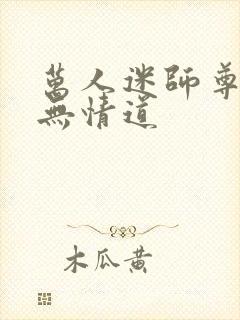 萬人迷師尊
無情道
木瓜黄